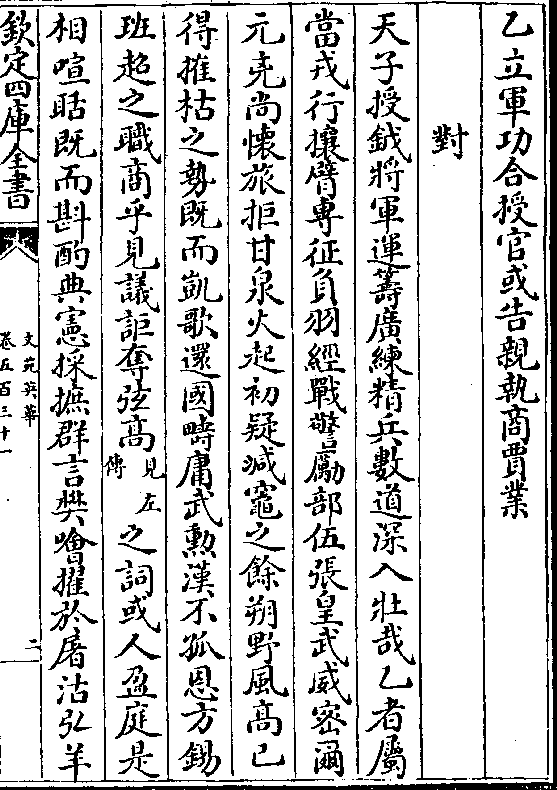 乙立軍功合授官或告親執商賈業
對
天子授鉞將軍運籌廣練精兵數道深入壯哉乙者屬
當戎行攘臂專征負羽經戰警勵部伍張皇武威密爾
元堯尚懷旅拒甘泉火起初疑減竈之餘朔野風髙已
得摧枯之勢既而凱歌還國疇庸武勲漢不孤恩方錫
班超之職商乎見議詎奪弦髙見左傳之詞或人盈庭是
相喧聒既而斟酌典憲採摭群言樊噲擢於屠沽弘羊
欽定四庫全書
文苑英華
卷五百三十一
二